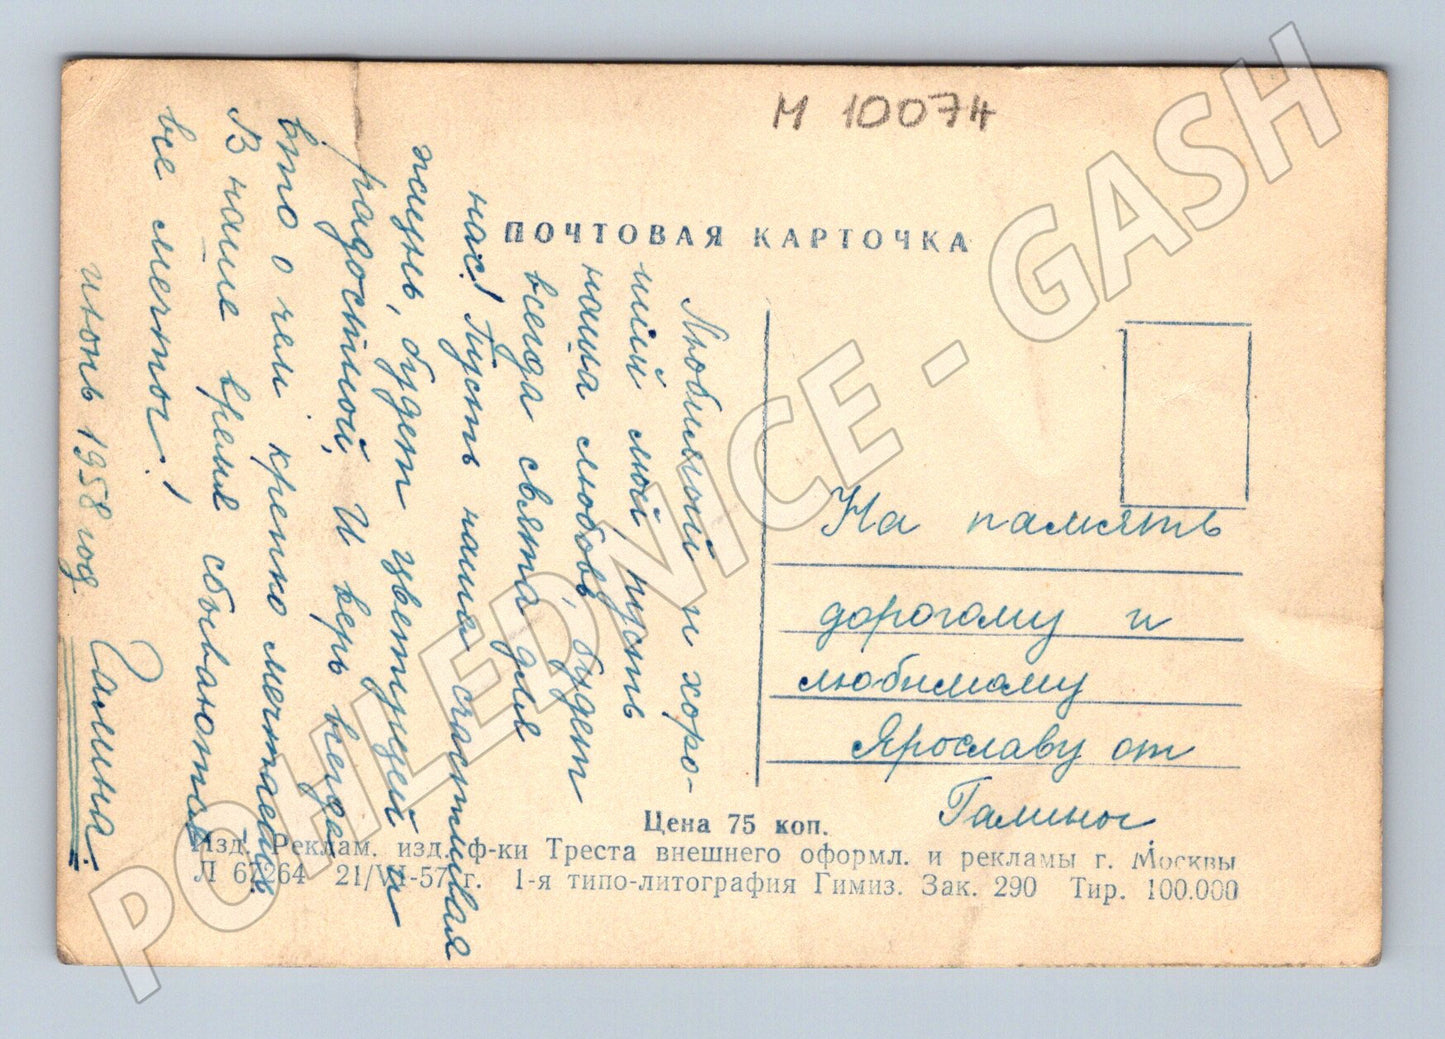 М 10074
ПОЧТОВАЯ КАРТОЧКА
Любимый и хоро-
ший мой, пусть
наша любовь будет
всегда свята для
нас! Пусть наша счастливая
жизнь, будет цветущей и
радостной, И верь всегда
в то о чем крепко мечтаешь
В наше время сбываются
все мечты!
июнь 1958 год.
Галина.
На память
дорогому и
любимому
Ярославу от
Галины
Цена 75 коп.
Изд. Реклам. изд. ф-ки Треста внешнего оформл. и рекламы г. Москвы
Л 67264 21/VI-57 г. 1-я типо-литография Гимиз. Зак. 290 Тир. 100.000
POHLEDNICE - GASH